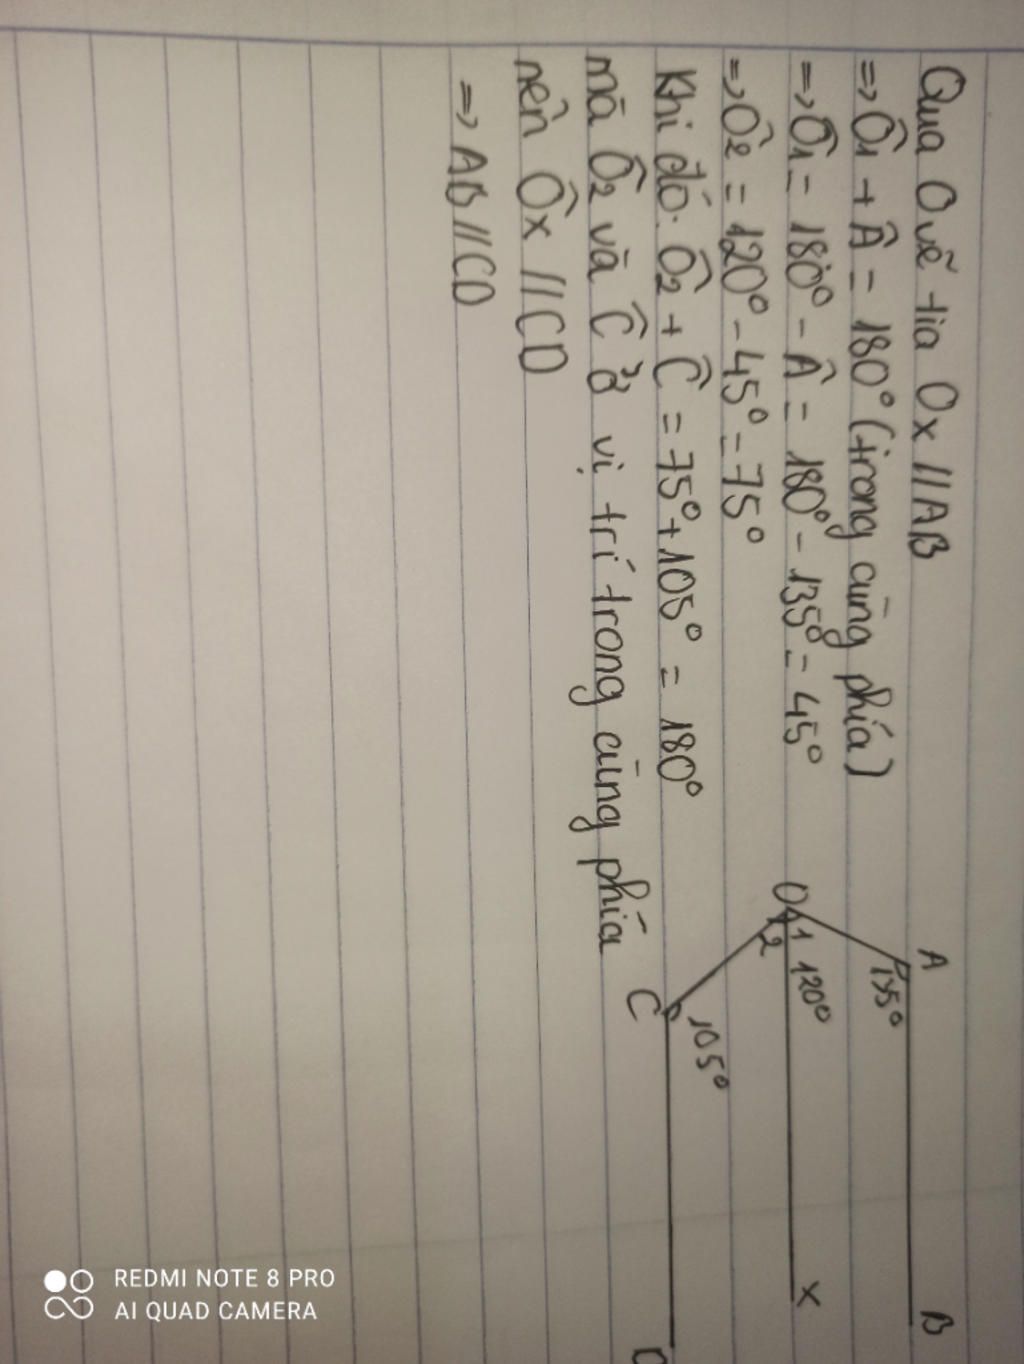 Qua O vẽ tia Ox // AB
=> Ô1 + Â = 180° (trong cùng phía)
=> Ô1 = 180° - Â = 180° - 135° = 45°
=> Ô2 = 120° - 45° = 75°
Khi đó: Ô2 + Ĉ = 75° + 105° = 180°
mà Ô2 và Ĉ ở vị trí trong cùng phía
nên Ôx // CD
=> AB // CD
A
B
135°
O
1
2
120°
x
C
105°
D
REDMI NOTE 8 PRO
AI QUAD CAMERA